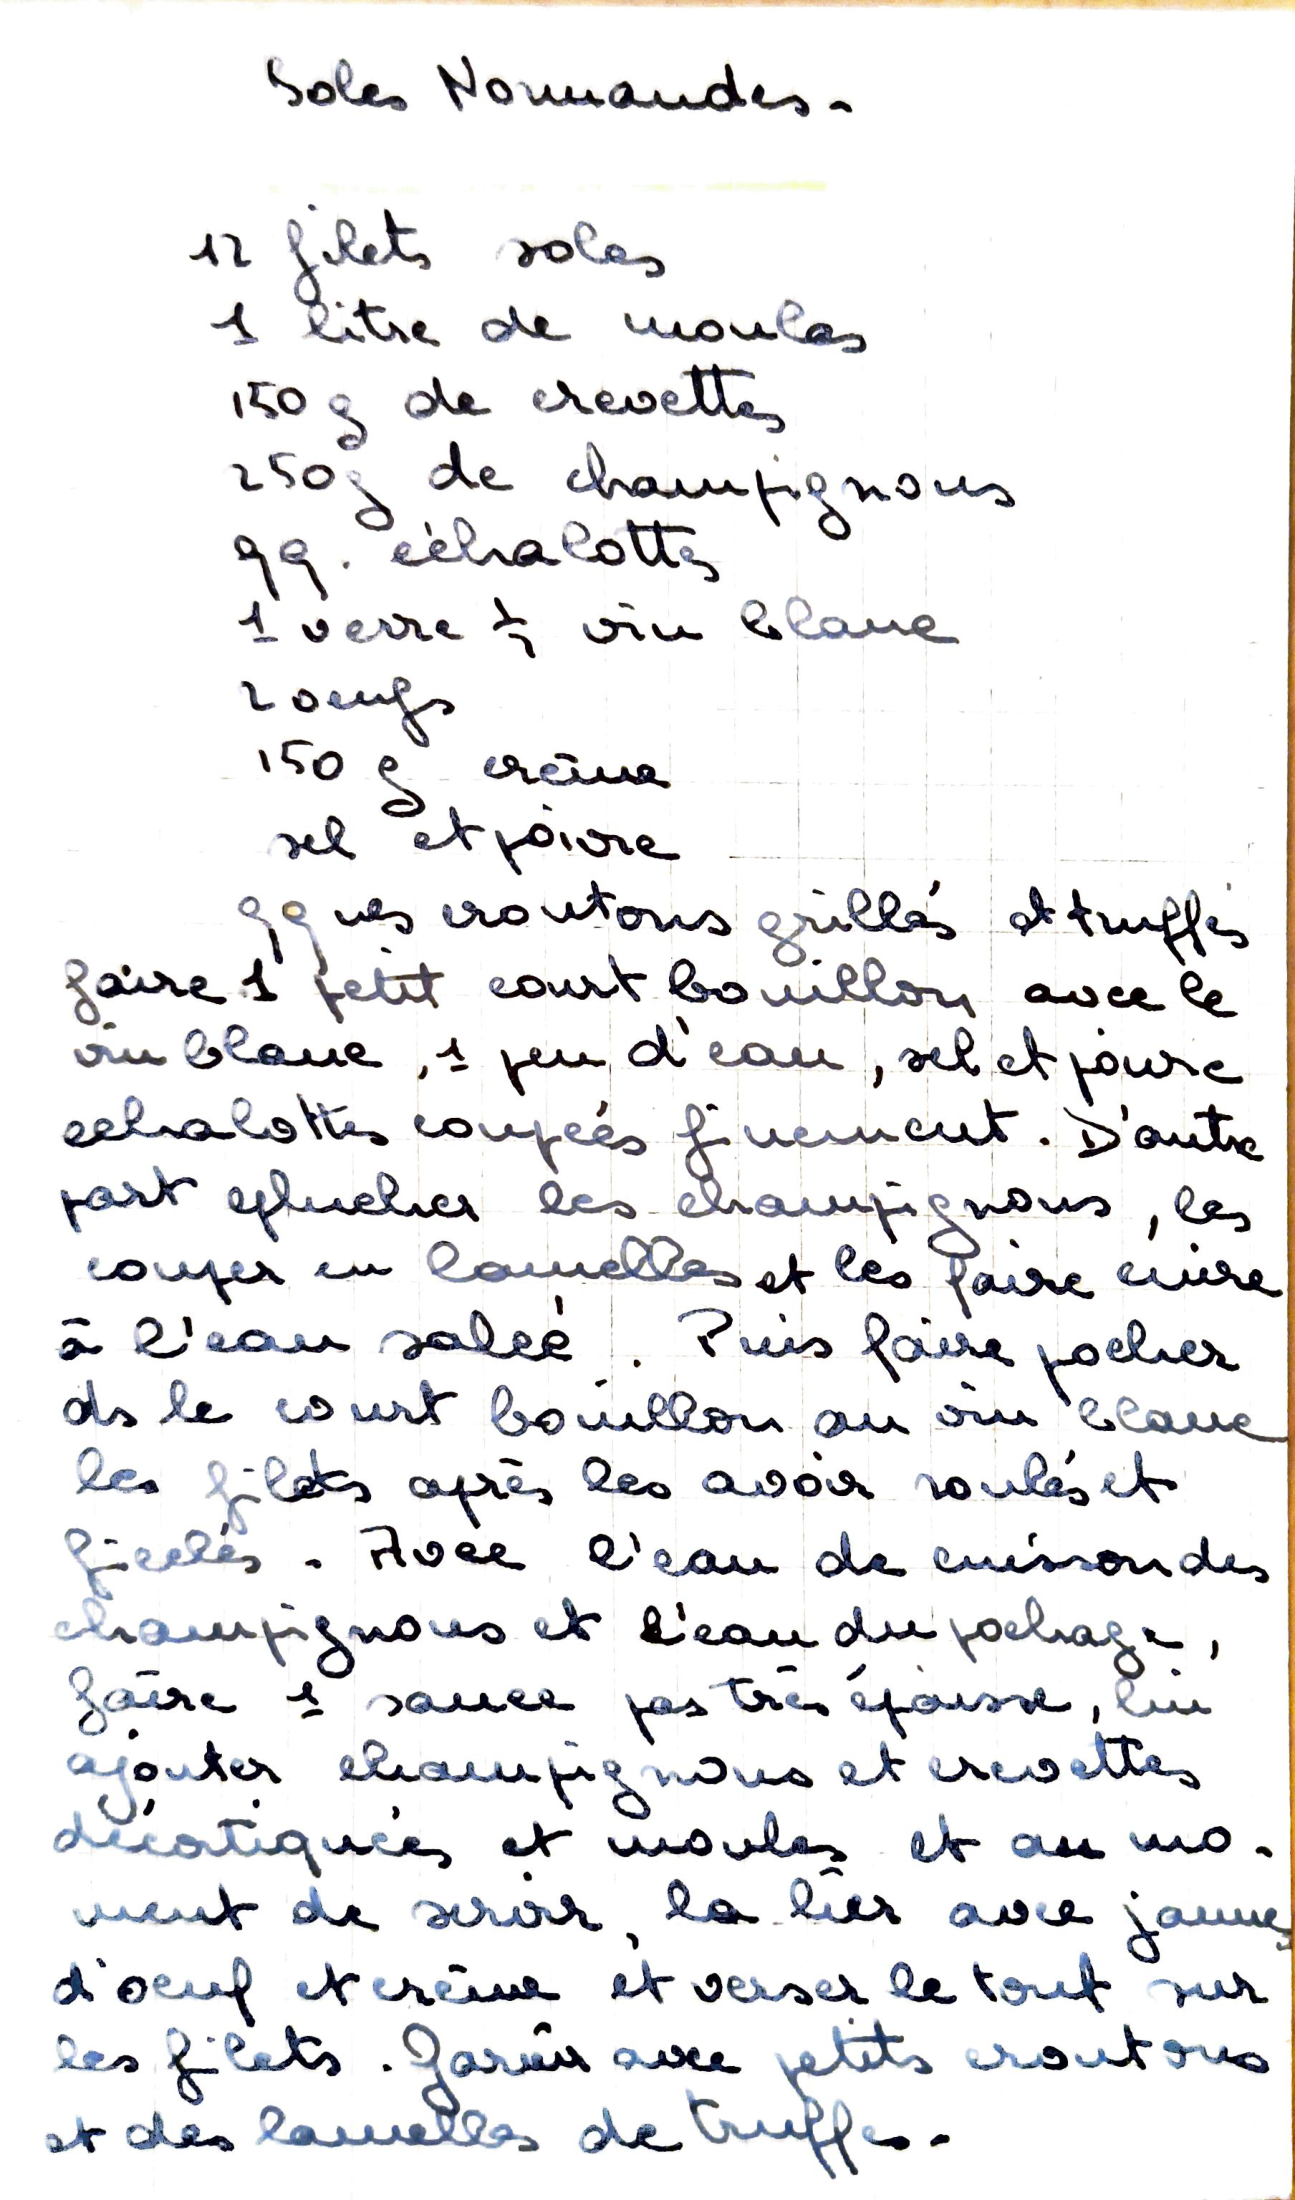 Soles Normandes.
12 filets soles
1 litre de moules
150 g de crevettes
250g de champignons
qq. échalottes
1 verre ½ vin blanc
2 oeufs
150 g crème
sel et poivre
qques croutons grillés et truffés
faire 1 petit court bouillon avec le
vin blanc, 1 peu d'eau, sel et poivre
echalottes coupées finement. D'autre
part eplucher les champignons, les
couper en lamelles et les faire cuire
à l'eau salée. Puis faire pocher
ds le court bouillon au vin blanc
les filets après les avoir roulés et
ficelés. Avec l'eau de cuisson des
champignons et l'eau du pochage,
faire 1 sauce pas très épaisse, lui
ajouter champignons et crevettes
décortiquées et moules et au mo-
ment de servir, la lier avec jaunes
d'oeuf et crème et verser le tout sur
les filets. Garnir avec petits croutons
et des lamelles de truffes.